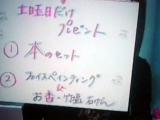 土曜日だけ
プレゼント
① 本のセット
② フェイスペインティング
お香・竹塩石けん